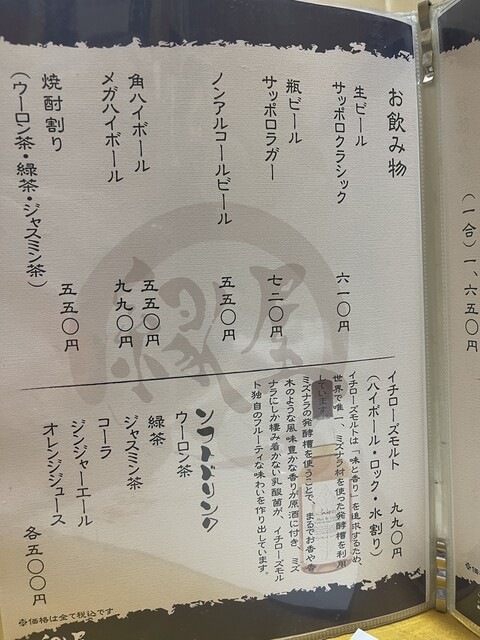 お飲み物
生ビール
サッポロクラシック
六一〇円
瓶ビール
サッポロラガー
七二〇円
ノンアルコールビール
五五〇円
角ハイボール
五五〇円
メガハイボール
九九〇円
焼酎割り
(ウーロン茶・緑茶・ジャスミン茶)
五五〇円
イチローズモルト 九九〇円
(ハイボール・ロック・水割り)
イチローズモルトは「味と香り」を追求するため、
世界で唯一、ミズナラ材を使った発酵槽を利用
しています。
ミズナラの発酵槽を使うことで、まるでお香や香
木のような風味豊かな香りが原酒に付き、ミズ
ナラにしか棲み着かない乳酸菌が、イチローズモル
ト独自のフルーティな味わいを作り出しています。
ソフトドリンク
ウーロン茶
緑茶
ジャスミン茶
コーラ
ジンジャーエール
オレンジジュース
各五〇〇円
※価格は全て税込です
縁屋
(一合)一、六五〇円